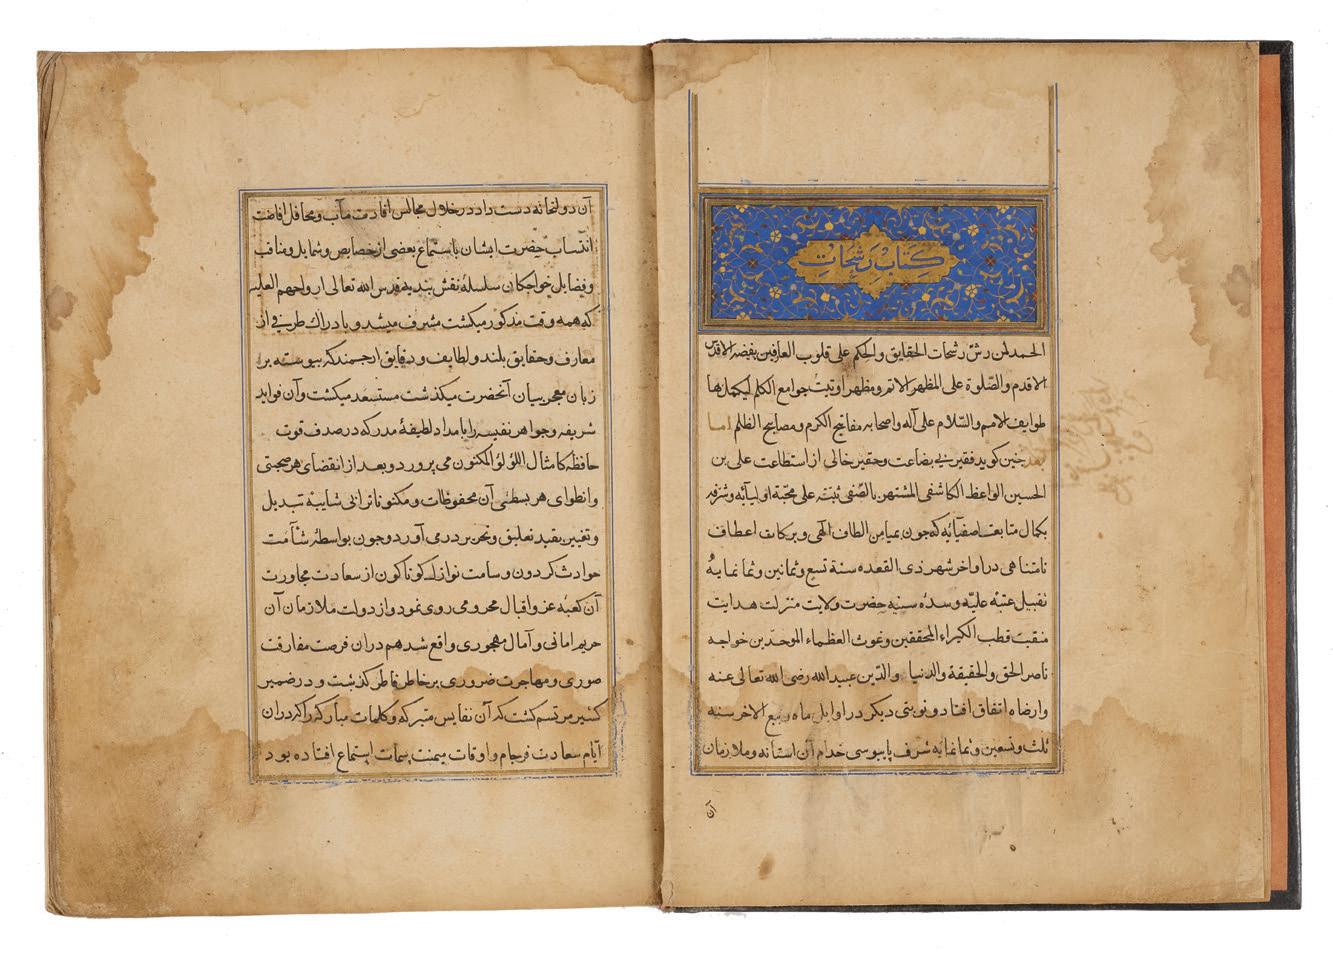 کتاب رشحات
الحمد لمن رش رشحات الحقایق والحکم علی قلوب العارفین بفیضه الاقدس
الاقدم والصّلوة علی المظهر الاتم ومظهر اوتیت جوامع الکلم لیکمل بها
طوایف الامم والسّلام علی آله واصحابه مفاتیح الکرم ومصابیح الظلم اما
بعد چنین کوید فقیر بی بضاعت وحقیر خالی از استطاعت علی بن
الحسین الواعظ الکاشفی المشتهر بالصّفی ثبته علی محبّة اولیآئه وشرفه
بکمال متابعت اصفیآئه که چون بمیامن الطاف الهی وبرکات اعطاف
نامتناهی در اواخر شهر ذی القعده سنة تسع وثمانین وثمانمایهٔ
تقبیل عتبه علیّه وسدهٔ سنیه حضرت ولایت منزلت هدایت
منقبت قطب الکبراء المحققین وغوث العظماء الموحدین خواجه
ناصر الحق والحقیقة والدنیا والدّین عبید الله رضی الله تعالی عنه
وارضاه اتفاق افتاد ونوبتی دیکر در اوایل ماه ربیع الاخر سنه
ثلث وتسعین وثمانمایه شرف پایبوسی خدام آن استانه وملازمان
آن
آن دولتخانه دست داد در خلال مجالس افادت مآب ومحافل افاضت
انتساب حضرت ایشان باستماع بعضی از خصایص وشمایل ومناقب
وفضایل خواجکان سلسلهٔ نقش بندیه قدس الله تعالی ارواحهم العلیه
که همه وقت مذکور میکشت مشرف میشد و بادراک طرفی از
معارف وحقایق بلند ولطایف ودقایق ارجمند که پیوسته بر
زبان معجز بیان آنحضرت میکذشت مستسعد میکشت وآن فواید
شریفه وجواهر نفیسه را بامداد لطیفهٔ مدرکه در صدف قوت
حافظه کامثال اللؤلؤ المکنون می پرورد وبعد از انقضای هر صحبتی
وانطوای هر بسطتی آن محفوظات ومکنونات را بی شایبهٔ تبدیل
وتغییر بقید تعلیق وتحریر در می آورد و چون بواسطهٔ شآمت
حوادث کردون و سامت نوازل کوناکون از سعادت مجاورت
آن کعبه عز واقبال محرومی روی نمود و از دولت ملازمان آن
حریم امانی وآمال مهجوری واقع شد هم در ان فرصت مفارقت
صوری ومهاجرت ضروری بر خاطر فاطر کذشت و در ضمیر
کسیر مرتسم کشت که آن نفایس متبرکه وکلمات مبارکه را که در ان
آیّام سعادت فرجام و اوقات میمنت سمات استماع افتاده بود